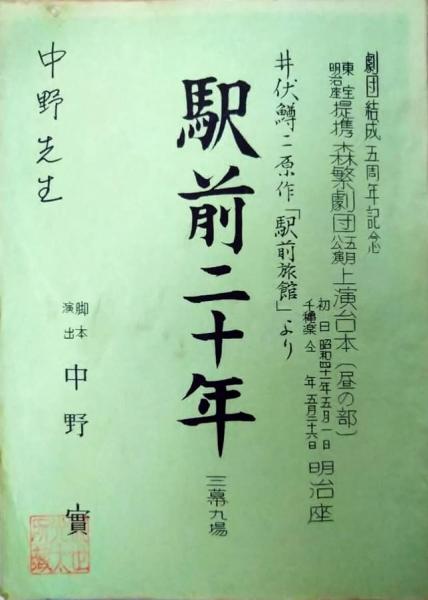 劇団結成五周年記念
東宝
明治座
提携 森繁劇団
五月
公演
上演台本(昼の部)
初日 昭和四十一年五月一日
千穐楽 仝 年五月二十六日
明治座
井伏鱒二原作「駅前旅館」より
駅前二十年
三幕九場
中野先生
脚本
演出
中野 實